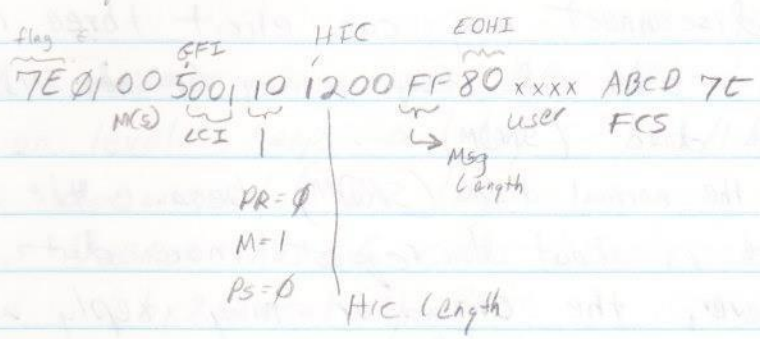 flag GFI HIC EOHI
7E Ø1 00 5001 10 1200 FF 80 xxxx ABCD 7E
M(S) LCI user FCS
Msg
Length
PR=Ø
M=1
PS=Ø
HIC Length